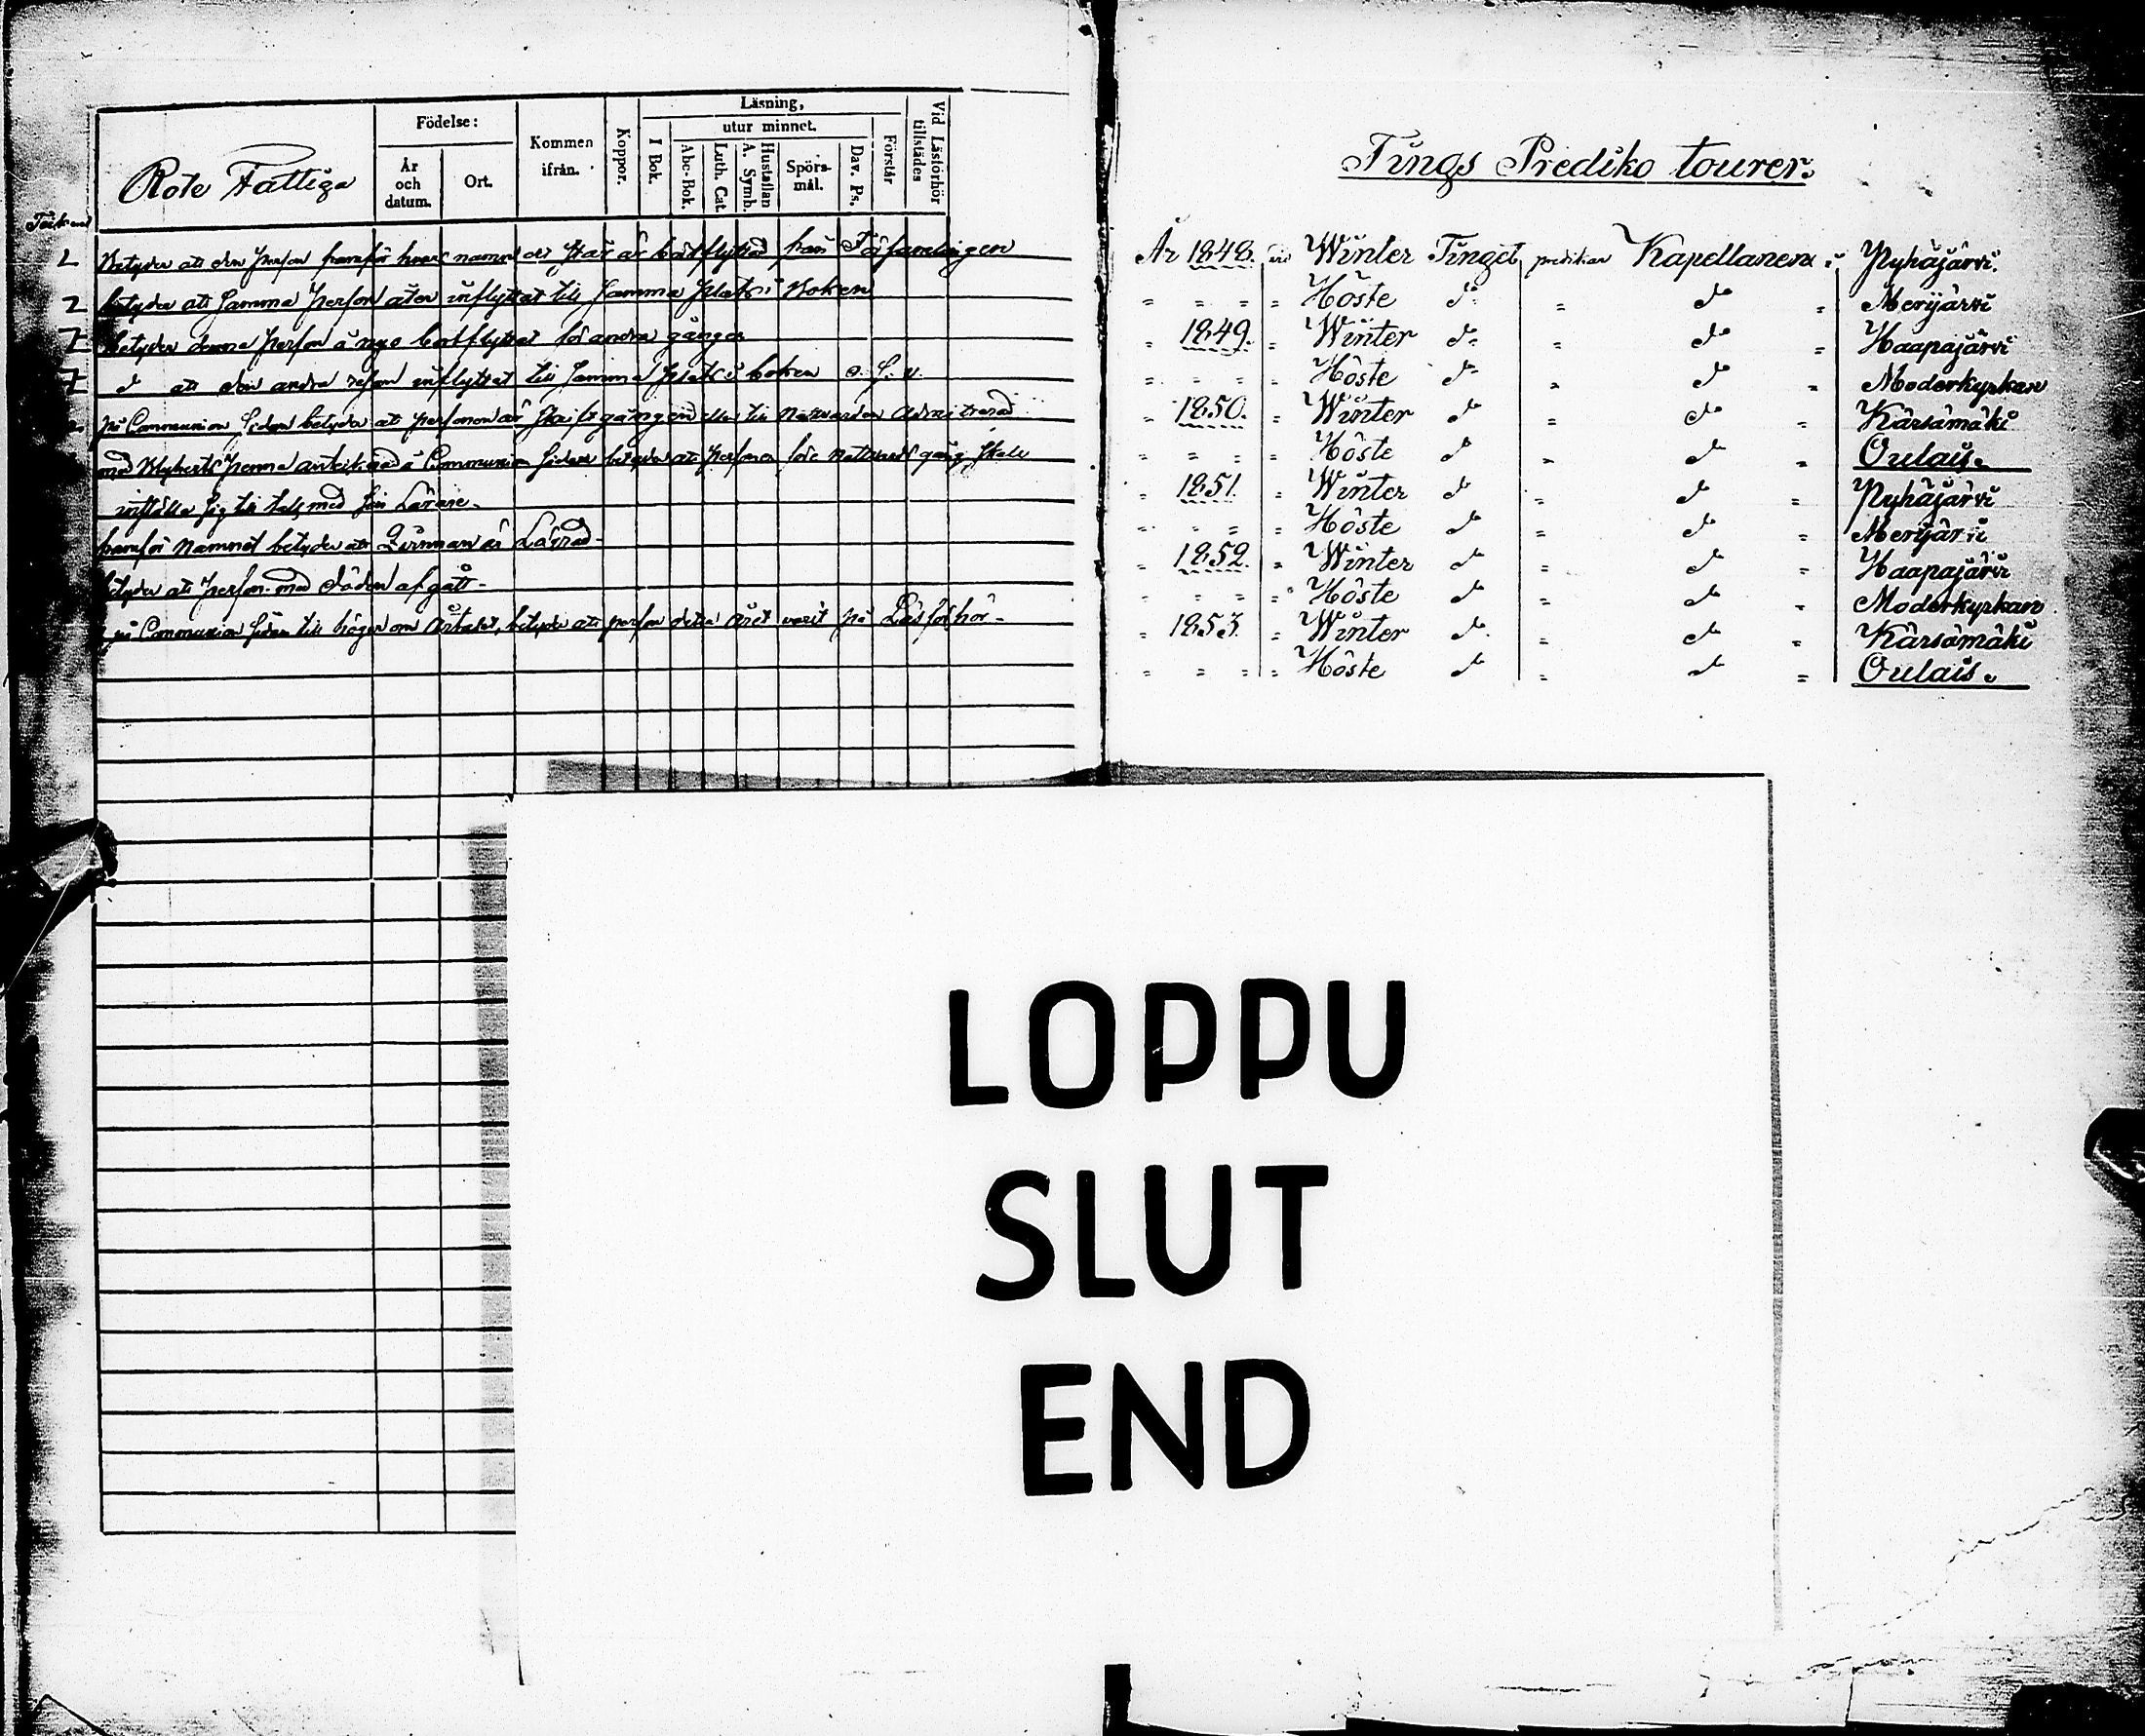 Rote Fattiga
Födelse:
År och datum.
Ort.
Kommen ifrån.
Koppor.
Läsning,
I Bok.
utur minnet.
Abc-Bok.
Luth. Cat.
A. Symb.
Hustaflan
Spörs-mål.
Dav. Ps.
Förstår
Vid Läsförhör tillstädes
Betyder att den Person framför hvars namn det står är bortflyttad från Församlingen
betyder att samma Person åter inflyttat till samma plats i Boken
betyder denna Person å nyo bortflyttat för andra gången
d:o att den andra resan inflyttat till samma plats i boken o. s. v.
på Communion sidan betyder att personen är skriftgången eller till Nattvarden Admitterad
med Blyerts penna antecknad å Communion sidan betyder att Personen före Nattvards gång skall
inställa sig till tals med sin Lärare.
framför Namnet betyder att Qvinnan är Lägrad
betyder att person med döden afgått
på Communion sidan till höger om årtalet, betyder att person detta året varit på Läsförhör.
Tings Prediko tourer.
År 1848. vid Winter Tinget predikar Kapellanen i Pyhäjärvi.
" " " " Höste d:o " d:o " Merijärvi
" 1849. " Winter d:o " d:o " Haapajärvi
" " " " Höste d:o " d:o " Moderkyrkan
" 1850. " Winter d:o " d:o " Kärsämäki
" " " " Höste d:o " d:o " Oulais.
" 1851. " Winter d:o " d:o " Pyhäjärvi
" " " " Höste d:o " d:o " Merijärvi
" 1852. " Winter d:o " d:o " Haapajärvi
" " " " Höste d:o " d:o " Moderkyrkan
" 1853. " Winter d:o " d:o " Kärsämäki
" " " " Höste d:o " d:o " Oulais.
LOPPU
SLUT
END